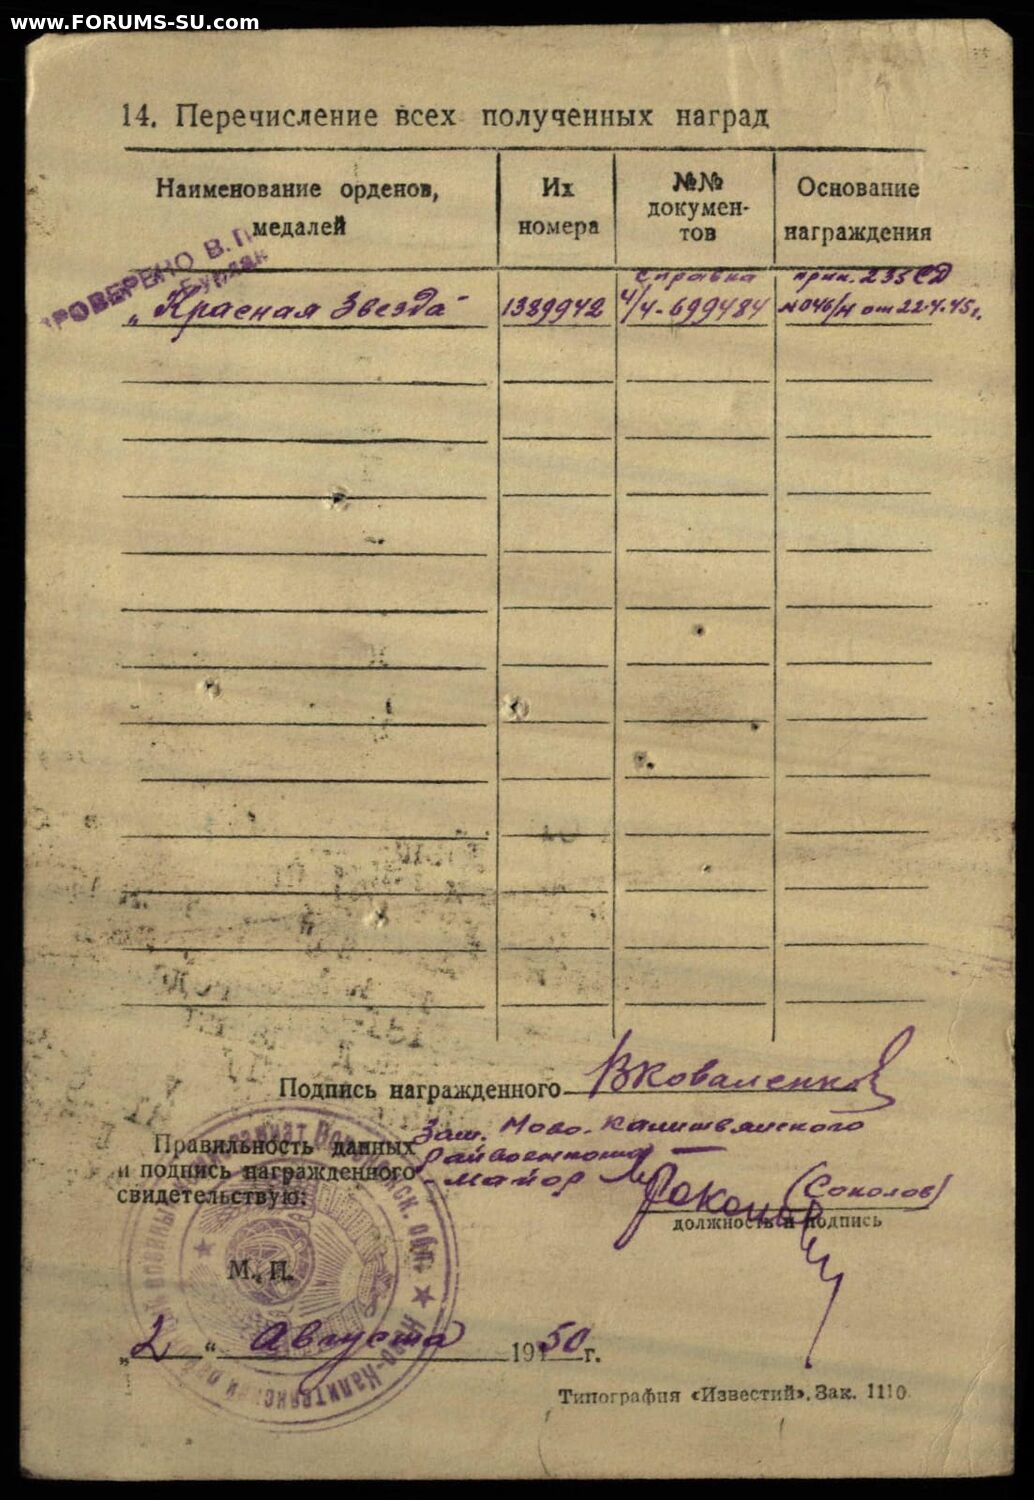 www.FORUMS-SU.com
14. Перечисление всех полученных наград
Наименование орденов, медалей
Их номера
№№ докумен-тов
Основание награждения
ПРОВЕРЕНО В. П.
„Красная Звезда"
1389942
справка
Ч/4-699484
прик. 235 СД
№046/н от 22.4.45г.
Подпись награжденного ВКоваленко
Правильность данных
и подпись награжденного
свидетельствую:
Зам. Ново-Калитвянского
Райвоенкома
- майор
(Соколов)
должность и подпись
М. П.
„2" Августа 1950 г.
Типография «Известий». Зак. 1110